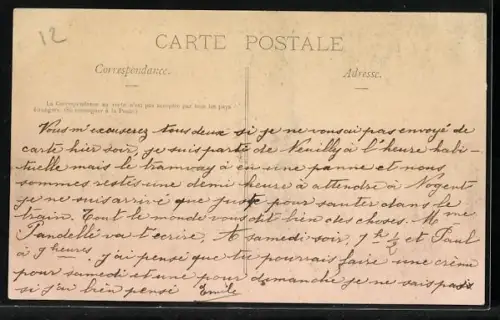 12
CARTE POSTALE
Correspondance.
Adresse.
La Correspondance au verso n'est pas acceptée par tous les pays
étrangers. (Se renseigner à la Poste)
Vous m'excuserez tous deux si je ne vous ai pas envoyé de
carte hier soir, je suis parti de Neuilly à l'heure habi-
tuelle mais le tramway à eu une panne et nous
sommes restés une demi heure à attendre à Nogent
je ne suis arrivé que juste pour sauter dans le
train. Tout le monde vous dit bien des choses. Mme
Pandellé va t'écrire, A samedi soir, 7h ½ et Paul
à 9 heures. j'ai pensé que tu pourrais faire une crème
pour samedi et une pour dimanche je ne sais pas
si j'ai bien pensé Emile